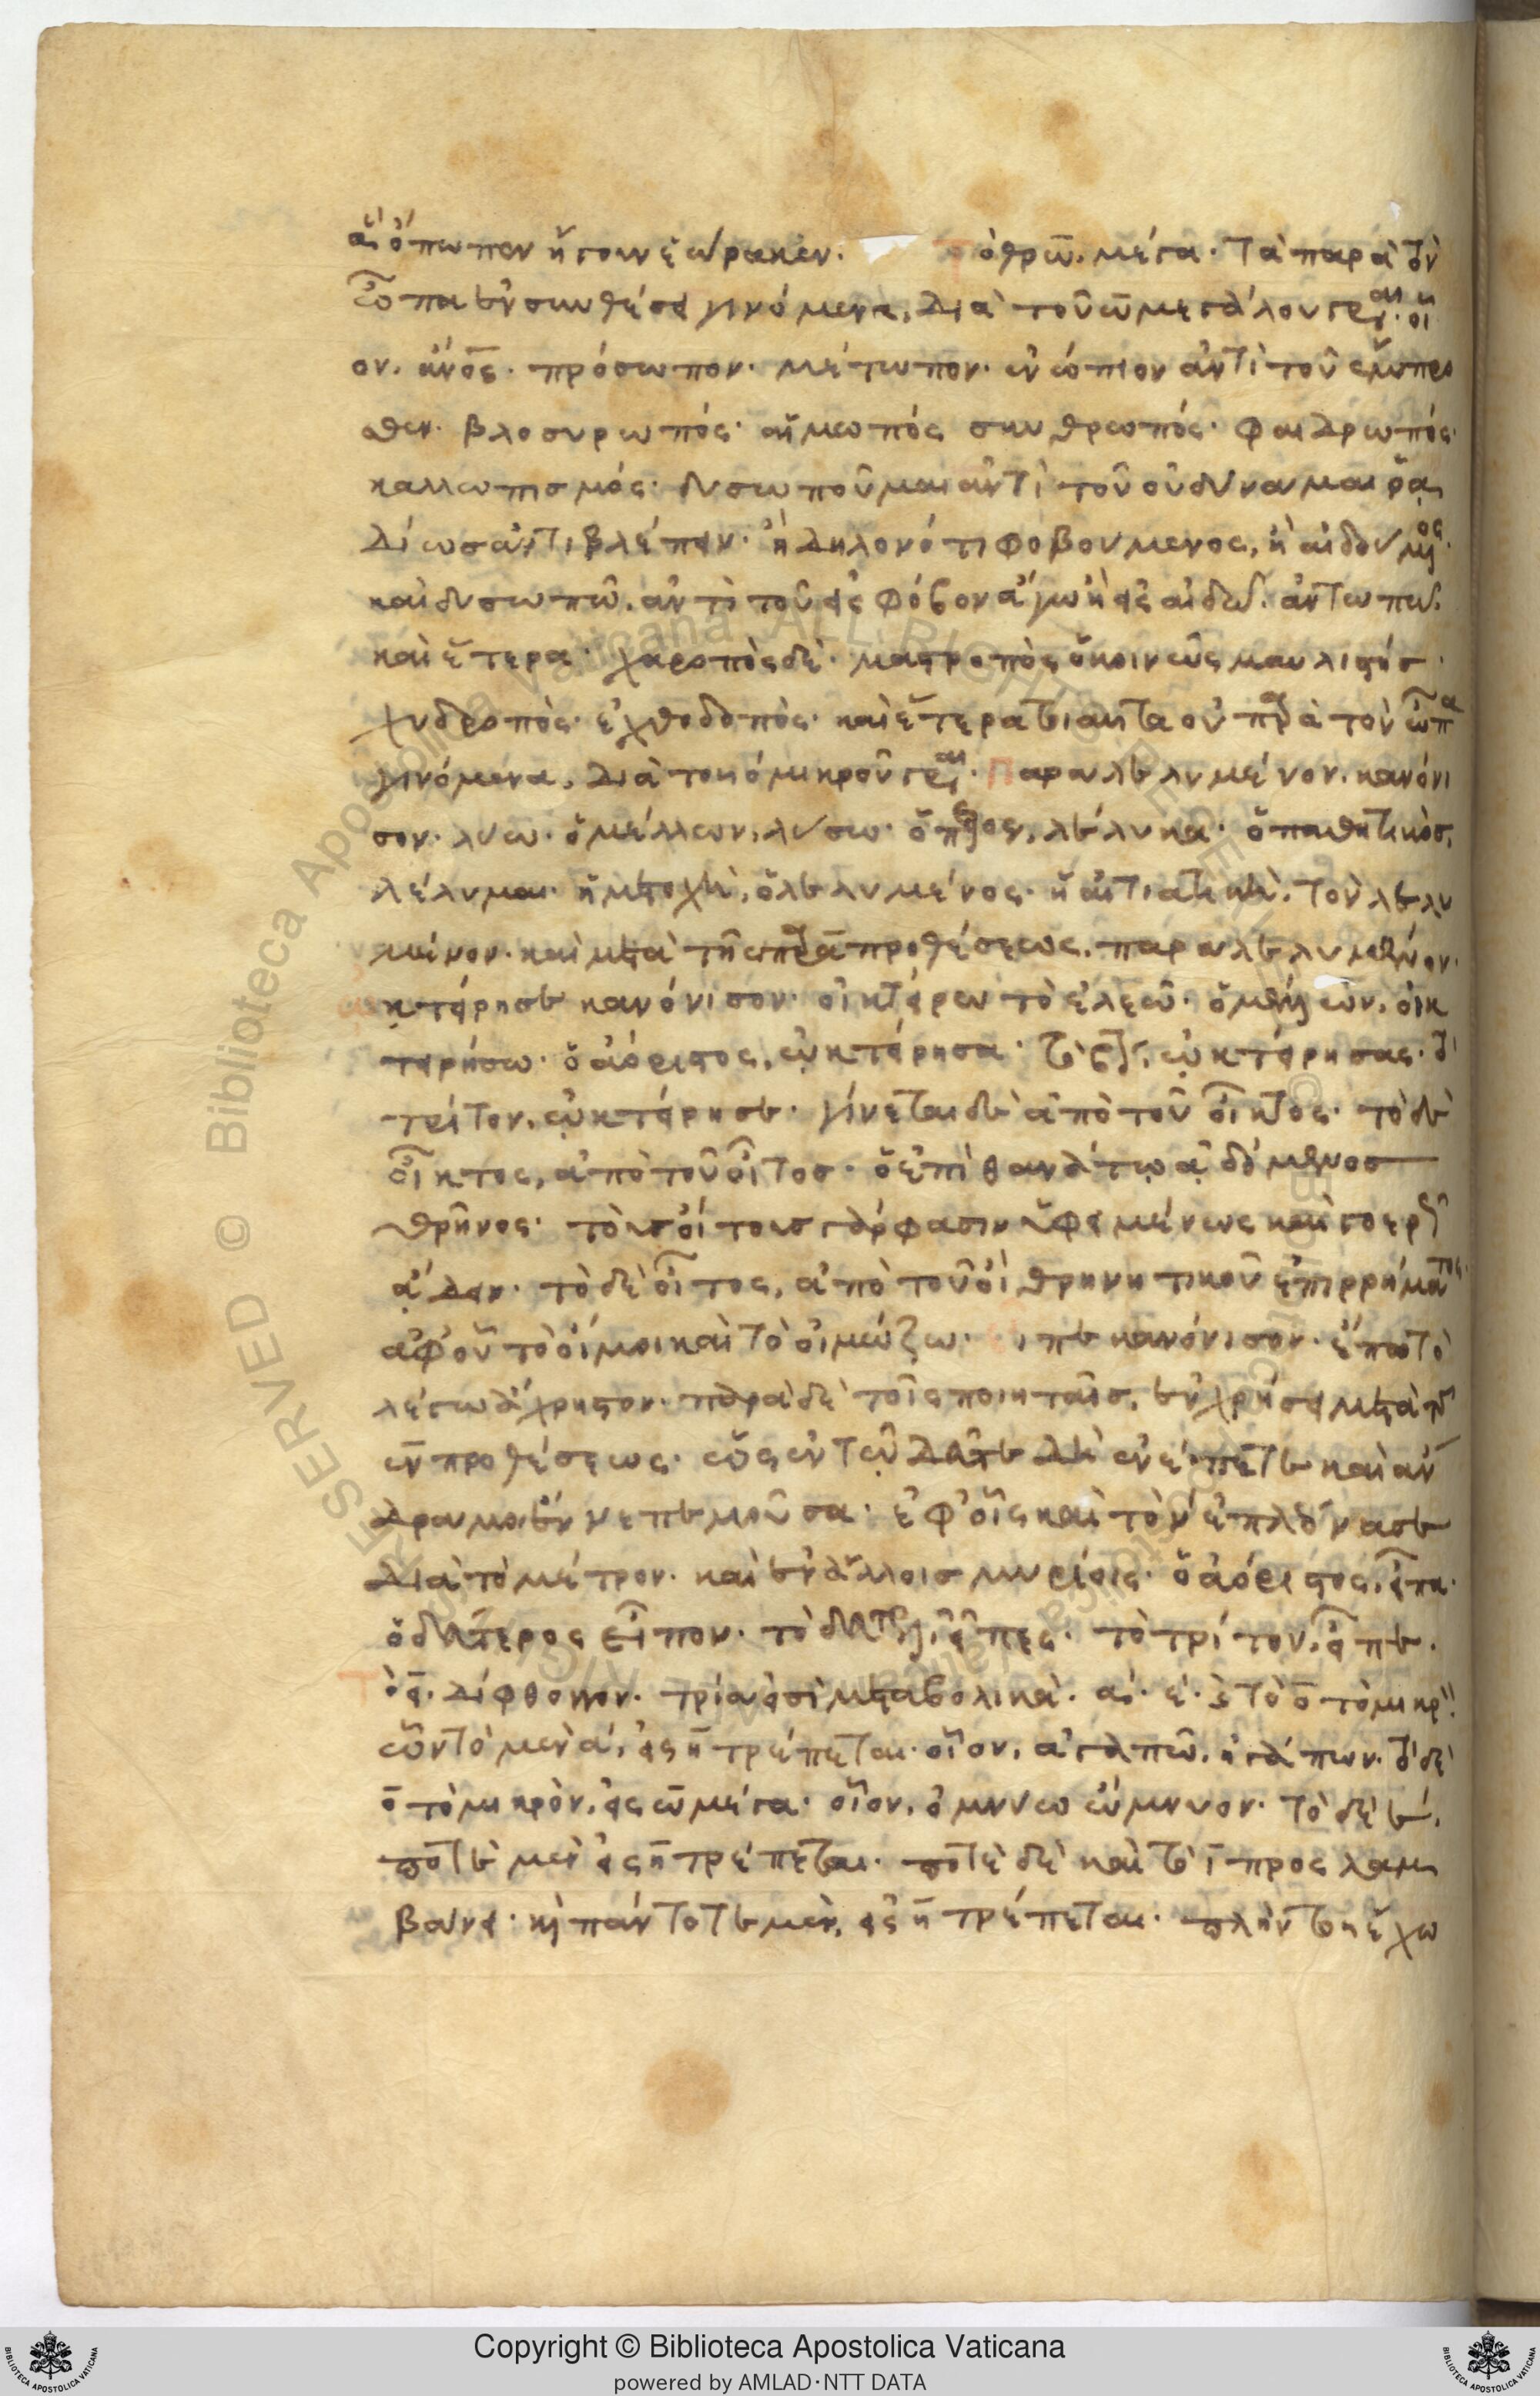 ἀεὶ ὄπωπεν ἤγουν ἑώρακεν. Τὸ θρω. μέγα. Τὰ παρὰ τὸν
ὦπα ἐν συνθέσει γινόμενα, διὰ τοῦ ω μεγάλου γράφεται. οἷ
ον. ἄνος. πρόσωπον. μέτωπον. ἐνώπιον ἀντὶ τοῦ ἔμπρο
σθεν. βλοσυρωπός. αἱμωπός σκυθρωπός. φαιδρωπός.
καλλωπισμός. δυσωποῦμαι ἀντὶ τοῦ οὐ δύναμαι ῥᾳ
δίως ἀντιβλέπειν. ἢ δηλονότι φοβούμενος, ἢ αἰδούμενος.
καὶ δυσωπῶ. ἀντὶ τοῦ εἰς φόβον ἄγω ἢ εἰς αἰδῶ. ἀντωπῶ.
καὶ ἕτερα. χαροπὸς δὲ. μαστροπὸς ὁ κοινῶς μαυλιστής.
χυδροπὸς. ἐχθοδοπὸς. καὶ ἕτερα τοιαῦτα οὐ παρὰ τὸν ὦπα
γινόμενα, διὰ τοῦ ο μικροῦ γράφεται. Παραλελυμένον. κανόνι
σον. λύω. ὁ μέλλων, λύσω. ὁ παρακείμενος, λέλυκα. ὁ παθητικὸς,
λέλυμαι. ἡ μετοχὴ, ὁ λελυμένος. ἡ αἰτιατικὴ, τὸν λελυ
μένον. καὶ μετὰ τῆς παρὰ προθέσεως, παραλελυμένον.
κτείρησε κανόνισον. οἰκτείρω τὸ ἐλεῶ. ὁ μέλλων, οἰκ
τειρήσω. ὁ ἀόριστος, ᾠκτείρησα. τὸ δεύτερον, ᾠκτείρησας. τὸ
τρίτον, ᾠκτείρησε. γίνεται δὲ ἀπὸ τοῦ οἶκτος. τὸ δὲ
οἶκτος, ἀπὸ τοῦ οἶτος. ὁ ἐπὶ θανάτῳ ᾀδόμενος
θρῆνος. τοὺς οἴτους γάρ φασιν ὑφειμένως καὶ γοερῶς
ᾄδειν. τὸ δὲ οἶτος, ἀπὸ τοῦ οἲ θρηνητικοῦ ἐπιρρήματος.
ἀφ' οὗ τὸ οἴμοι καὶ τὸ οἰμώζω. Εἶπε κανόνισον. ἔπω τὸ
λέγω ἄχρηστον. παρὰ δὲ τοῖς ποιηταῖς, ἐν χρήσει μετὰ τῆς
ἐν προθέσεως. ὡς ἐν τῷ δεῦτε δὴ ἐνέπετε καὶ ἄν
δρα μοι ἔννεπε μοῦσα. ἐφ' οἷς καὶ τὸ ν ἐπλεόνασε
διὰ τὸ μέτρον. καὶ ἐν ἄλλοις μυρίοις. ὁ ἀόριστος, εἶπα.
ὁ δεύτερος εἶπον. τὸ δεύτερον, εἶπες. τὸ τρίτον, εἶπε.
Τὸ ει. δίφθογγον. τρία εἰσὶ μεταβολικὰ. α. ε. καὶ τὸ ο τὸ μικρόν.
ὧν τὸ μὲν α, εἰς η τρέπεται. οἷον, ἀγαπῶ, ἠγάπων. τὸ δὲ
ο τὸ μικρὸν, εἰς ω μέγα. οἷον, ὀμνύω ὤμνυον. τὸ δὲ ε,
ποτὲ μὲν εἰς η τρέπεται. ποτὲ δὲ καὶ τὸ ι προσλαμ
βάνει. καὶ πάντοτε μὲν, εἰς η τρέπεται. πλὴν τοῦ ἔχω
Copyright © Biblioteca Apostolica Vaticana
powered by AMLAD·NTT DATA